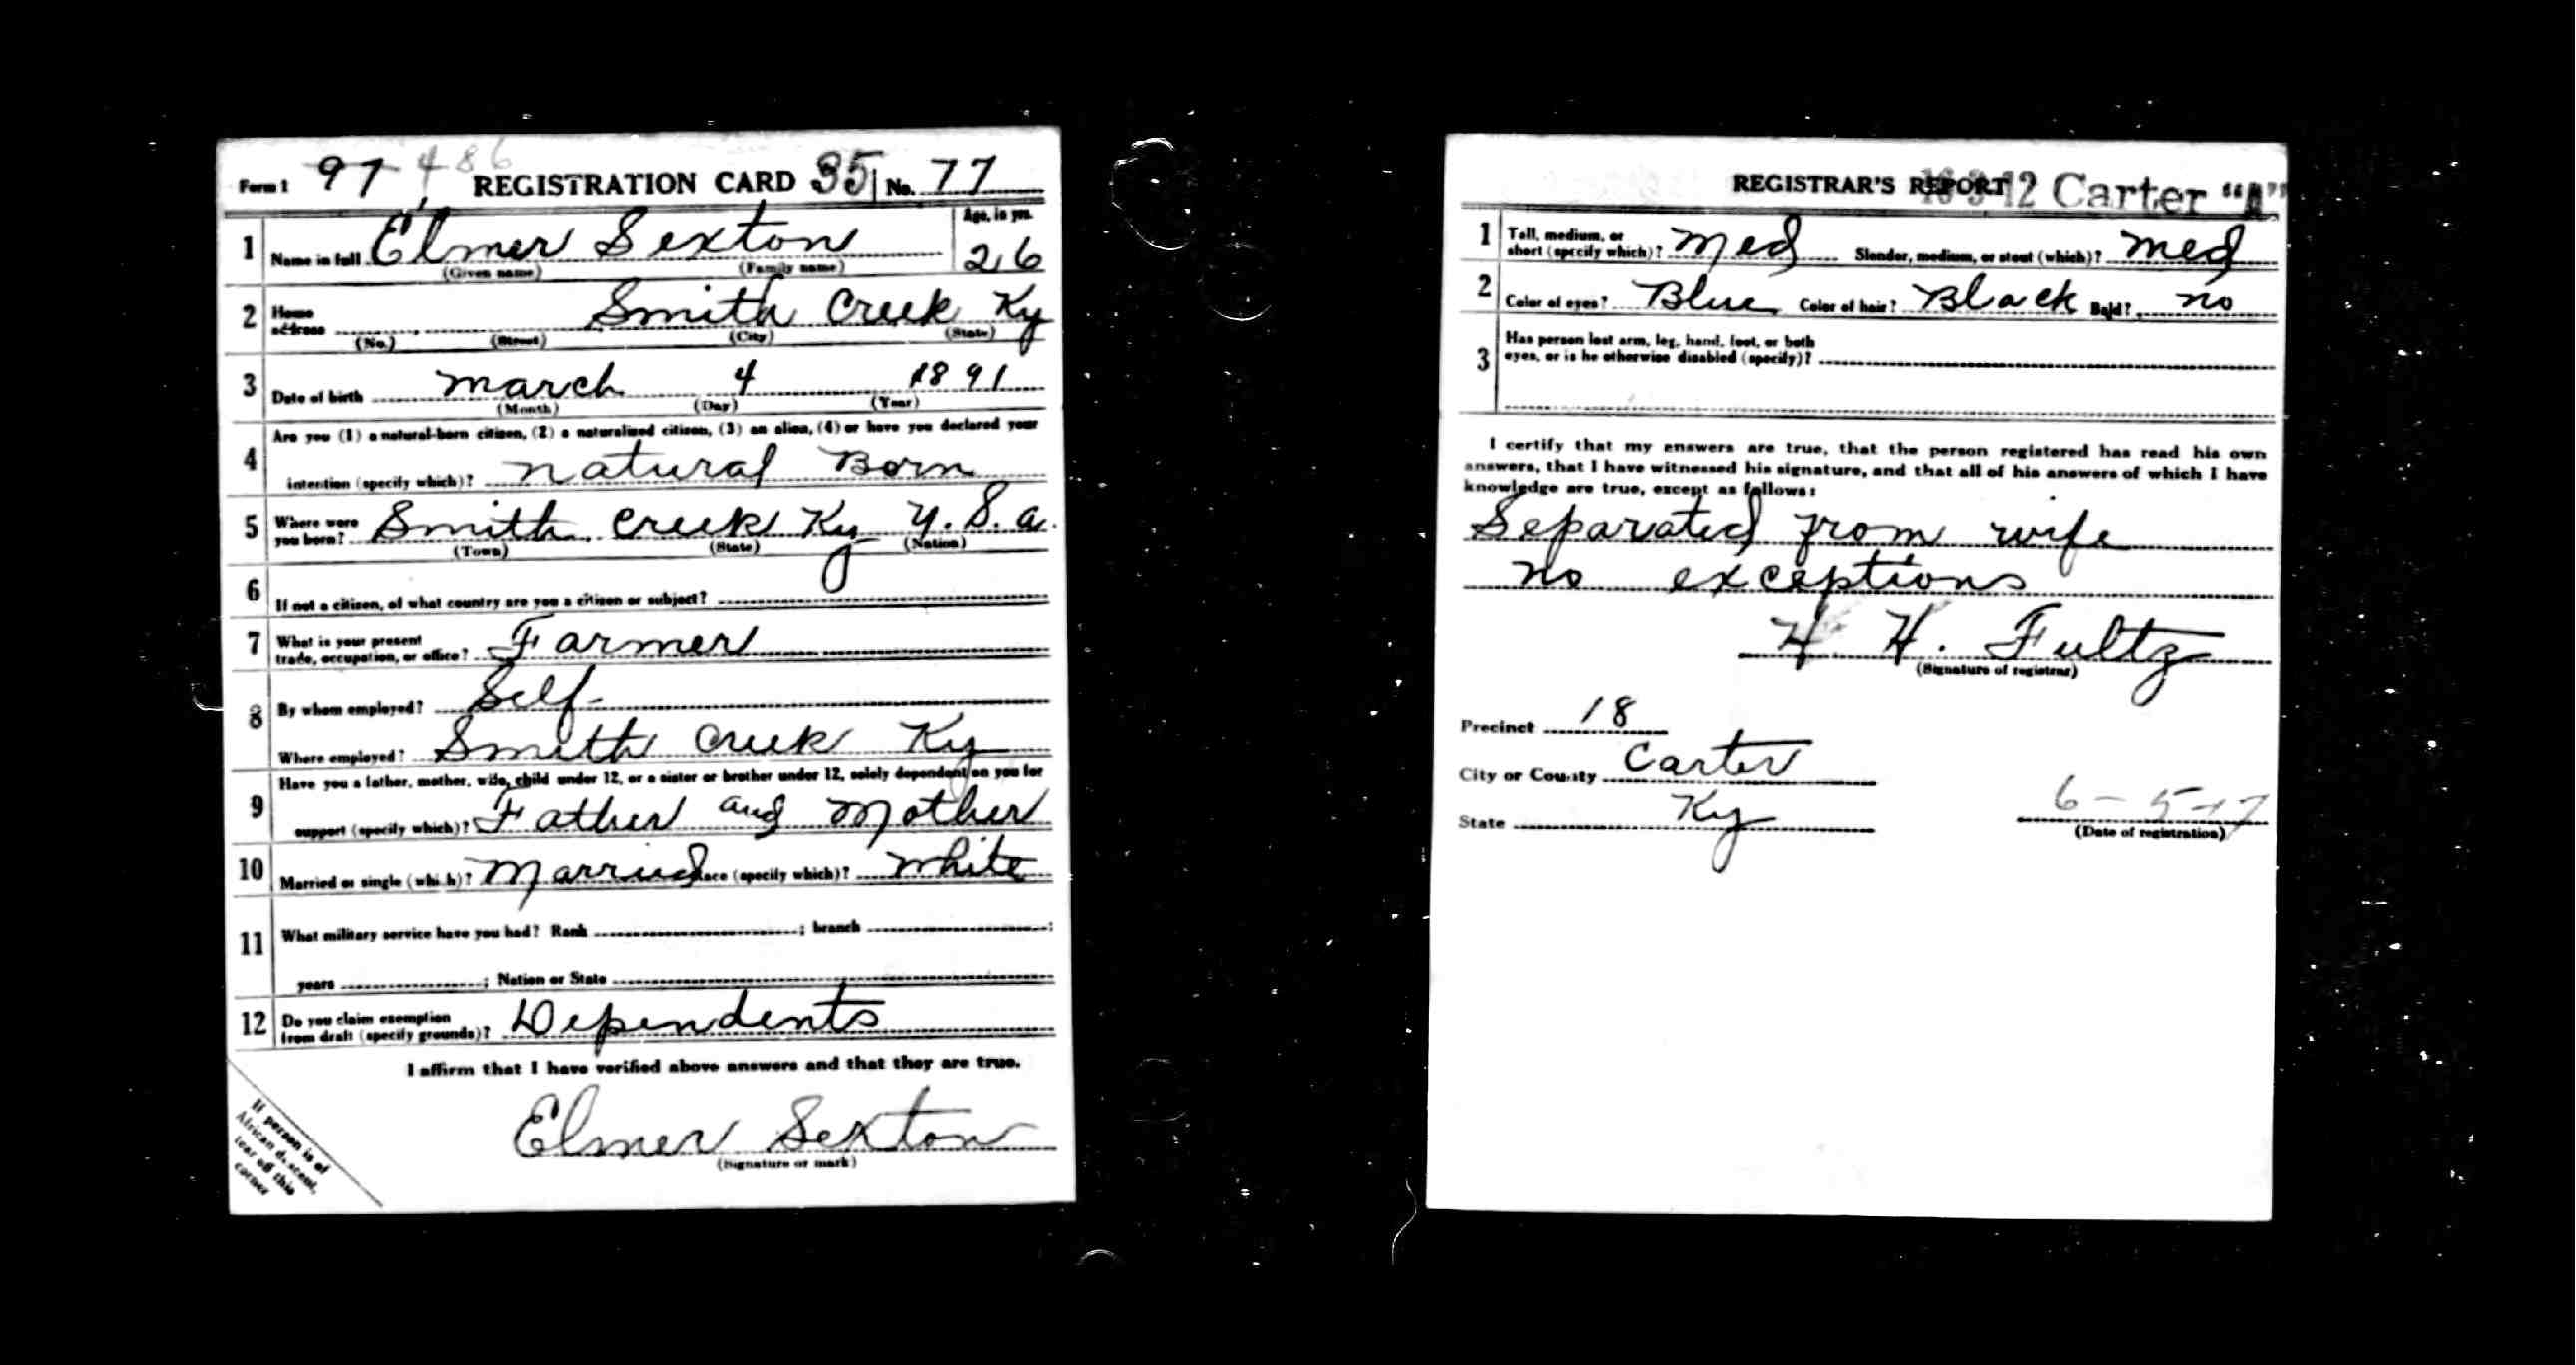 Form 1 97 486 REGISTRATION CARD 35 No. 77
1 Name in full Elmer Sexton Age, in yrs. 26
(Given name) (Family name)
2 Home address Smith Creek Ky
(No.) (Street) (City) (State)
3 Date of birth March 4 1891
(Month) (Day) (Year)
4 Are you (1) a natural-born citizen, (2) a naturalized citizen, (3) an alien, (4) or have you declared your
intention (specify which)? Natural Born
5 Where were you born? Smith Creek Ky U.S.a.
(Town) (State) (Nation)
6 If not a citizen, of what country are you a citizen or subject?
7 What is your present trade, occupation, or office? Farmer
8 By whom employed? Self
Where employed? Smith Creek Ky
9 Have you a father, mother, wife, child under 12, or a sister or brother under 12, solely dependent on you for
support (specify which)? Father and Mother
10 Married or single (which)? Married Race (specify which)? White
11 What military service have you had? Rank ; branch ;
years ; Nation or State
12 Do you claim exemption from draft (specify grounds)? Dependents
I affirm that I have verified above answers and that they are true.
Elmer Sexton
(Signature or mark)
If person is of
African descent,
tear off this
corner
REGISTRAR'S REPORT 16-3-12 Carter "A"
1 Tall, medium, or short (specify which)? Med Slender, medium, or stout (which)? Med
2 Color of eyes? Blue Color of hair? Black Bald? no
3 Has person lost arm, leg, hand, foot, or both
eyes, or is he otherwise disabled (specify)?
I certify that my answers are true, that the person registered has read his own
answers, that I have witnessed his signature, and that all of his answers of which I have
knowledge are true, except as follows:
Separated from wife
no exceptions
H. H. Fultz
(Signature of registrar)
Precinct 18
City or County Carter
State Ky 6-5-17
(Date of registration)